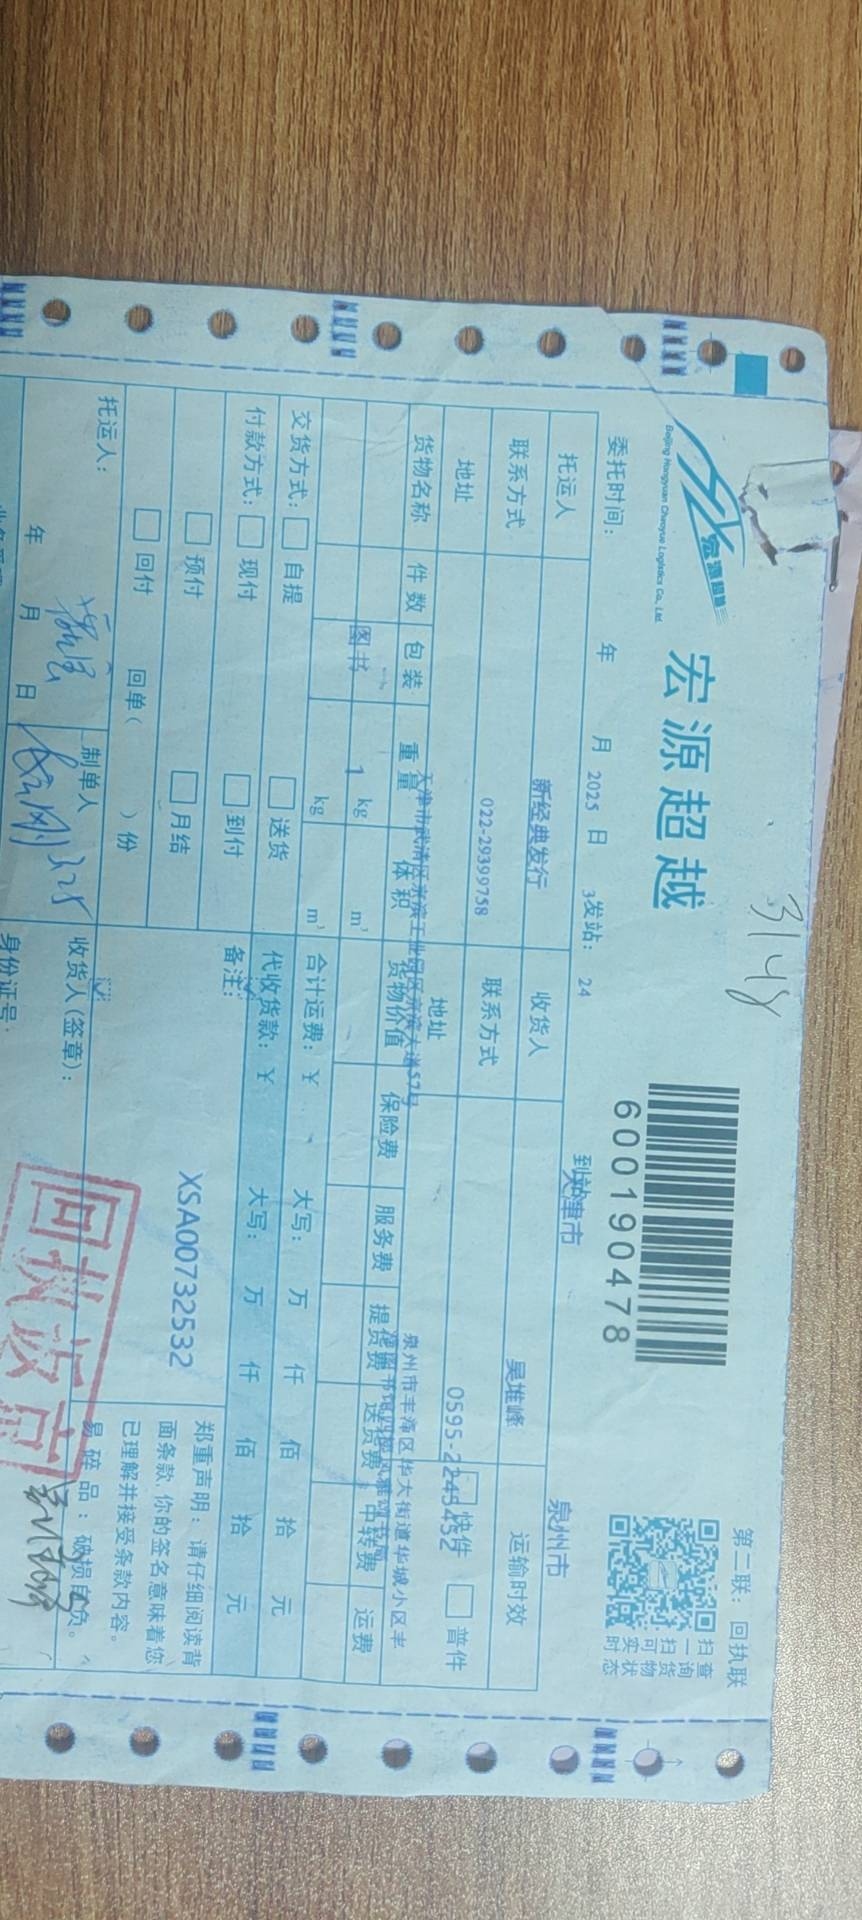 3148
第二联：回执联
宏源超越
宏源超越
Beijing Hongyuan Chaoyue Logistics Co., Ltd.
600190478
扫一扫可实时
查询货物状态
委托时间： 年 月 2025 日 3发站： 24 到站 天津市 泉州市
托运人 新经典发行 收货人 吴堆峰 运输时效
联系方式 022-29399758 联系方式 0595-2245452 快件 普件
地址 天津市武清区京滨工业园区京滨大道57号 地址 泉州市丰泽区华大街道华城小区丰
货物名称 件数 包装 重量 体积 货物价值 保险费 服务费 提货费 送货费 中转费 运费
图书 1 kg m³
kg m³ 合计运费：￥ 大写： 万 仟 佰 拾 元
交货方式： 自提 送货 代收货款：￥ 大写： 万 仟 佰 拾 元
付款方式： 现付 到付 备注：
预付 月结 XSA00732532
回付 回单（ ）份
郑重声明：请仔细阅读背
面条款，你的签名意味着您
已理解并接受条款内容。
易碎品：破损自负。
托运人： 制单人 收货人(签章)：
回执返京
年 月 日 3.25 身份证号：